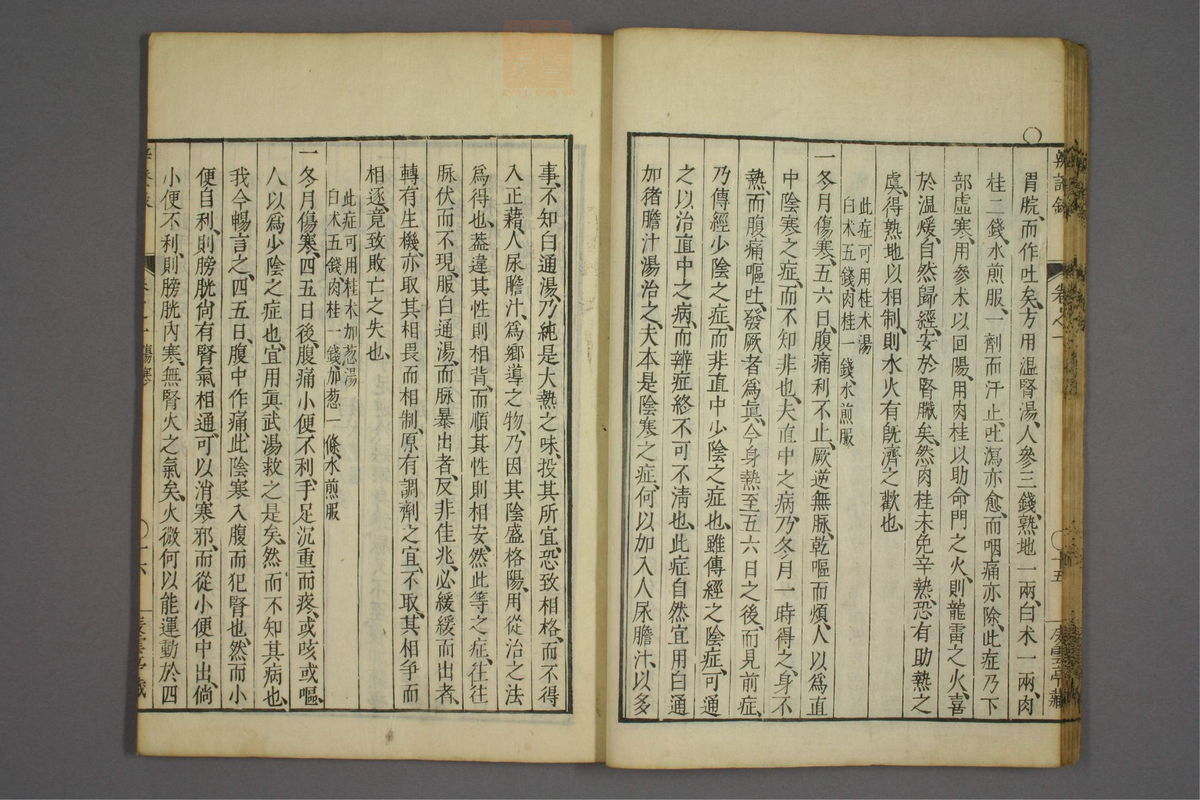 辨證錄 卷之一 十五
胃脘、而作吐矣、方用溫腎湯、人參三錢、熟地一兩、白朮一兩、肉
桂二錢、水煎服、一劑而汗止、吐瀉亦愈、而咽痛亦除、此症乃下
部虛寒、用參朮以回陽、用肉桂以助命門之火、則龍雷之火、喜
於溫煖、自然歸經、安於腎臟矣、然肉桂未免辛熱、恐有助熱之
虞、得熟地以相制、則水火有既濟之歡也、
此症可用桂朮湯
白朮五錢肉桂一錢水煎服
一冬月傷寒、五六日、腹痛利不止、厥逆無脉、乾嘔而煩、人以為直
中陰寒之症、而不知非也、夫直中之病、乃冬月一時得之、身不
熱、而腹痛嘔吐、發厥者為眞、今身熱至五六日之後、而見前症、
乃傳經少陰之症、而非直中少陰之症也、雖傳經之陰症、可通
之以治直中之病、而辨症終不可不淸也、此症自然宜用白通
加猪膽汁湯治之、夫本是陰寒之症、何以加入人尿膽汁、以多
事、不知白通湯、乃純是大熱之味、投其所宜、恐致相格、而不得
入、正藉人尿膽汁、為鄕導之物、乃因其陰盛格陽、用從治之法
為得也、葢違其性則相背、而順其性則相安、然此等之症、往往
脉伏而不現、服白通湯、而脉暴出者、反非佳兆、必緩緩而出者、
轉有生機、亦取其相畏而相制、原有調劑之宜、不取其相爭而
相逐、竟致敗亡之失也、
此症可用桂朮加葱湯
白朮五錢肉桂一錢加葱一條水煎服
一冬月傷寒、四五日後、腹痛小便不利、手足沉重而疼、或咳或嘔、
人以爲少陰之症也、宜用眞武湯救之是矣、然而不知其病也、
我今暢言之、四五日、腹中作痛、此陰寒入腹而犯腎也、然而小
便自利、則膀胱尚有腎氣相通、可以消寒邪、而從小便中出、倘
小便不利、則膀胱內寒、無腎火之氣矣、火微何以能運動於四
傷寒 十六